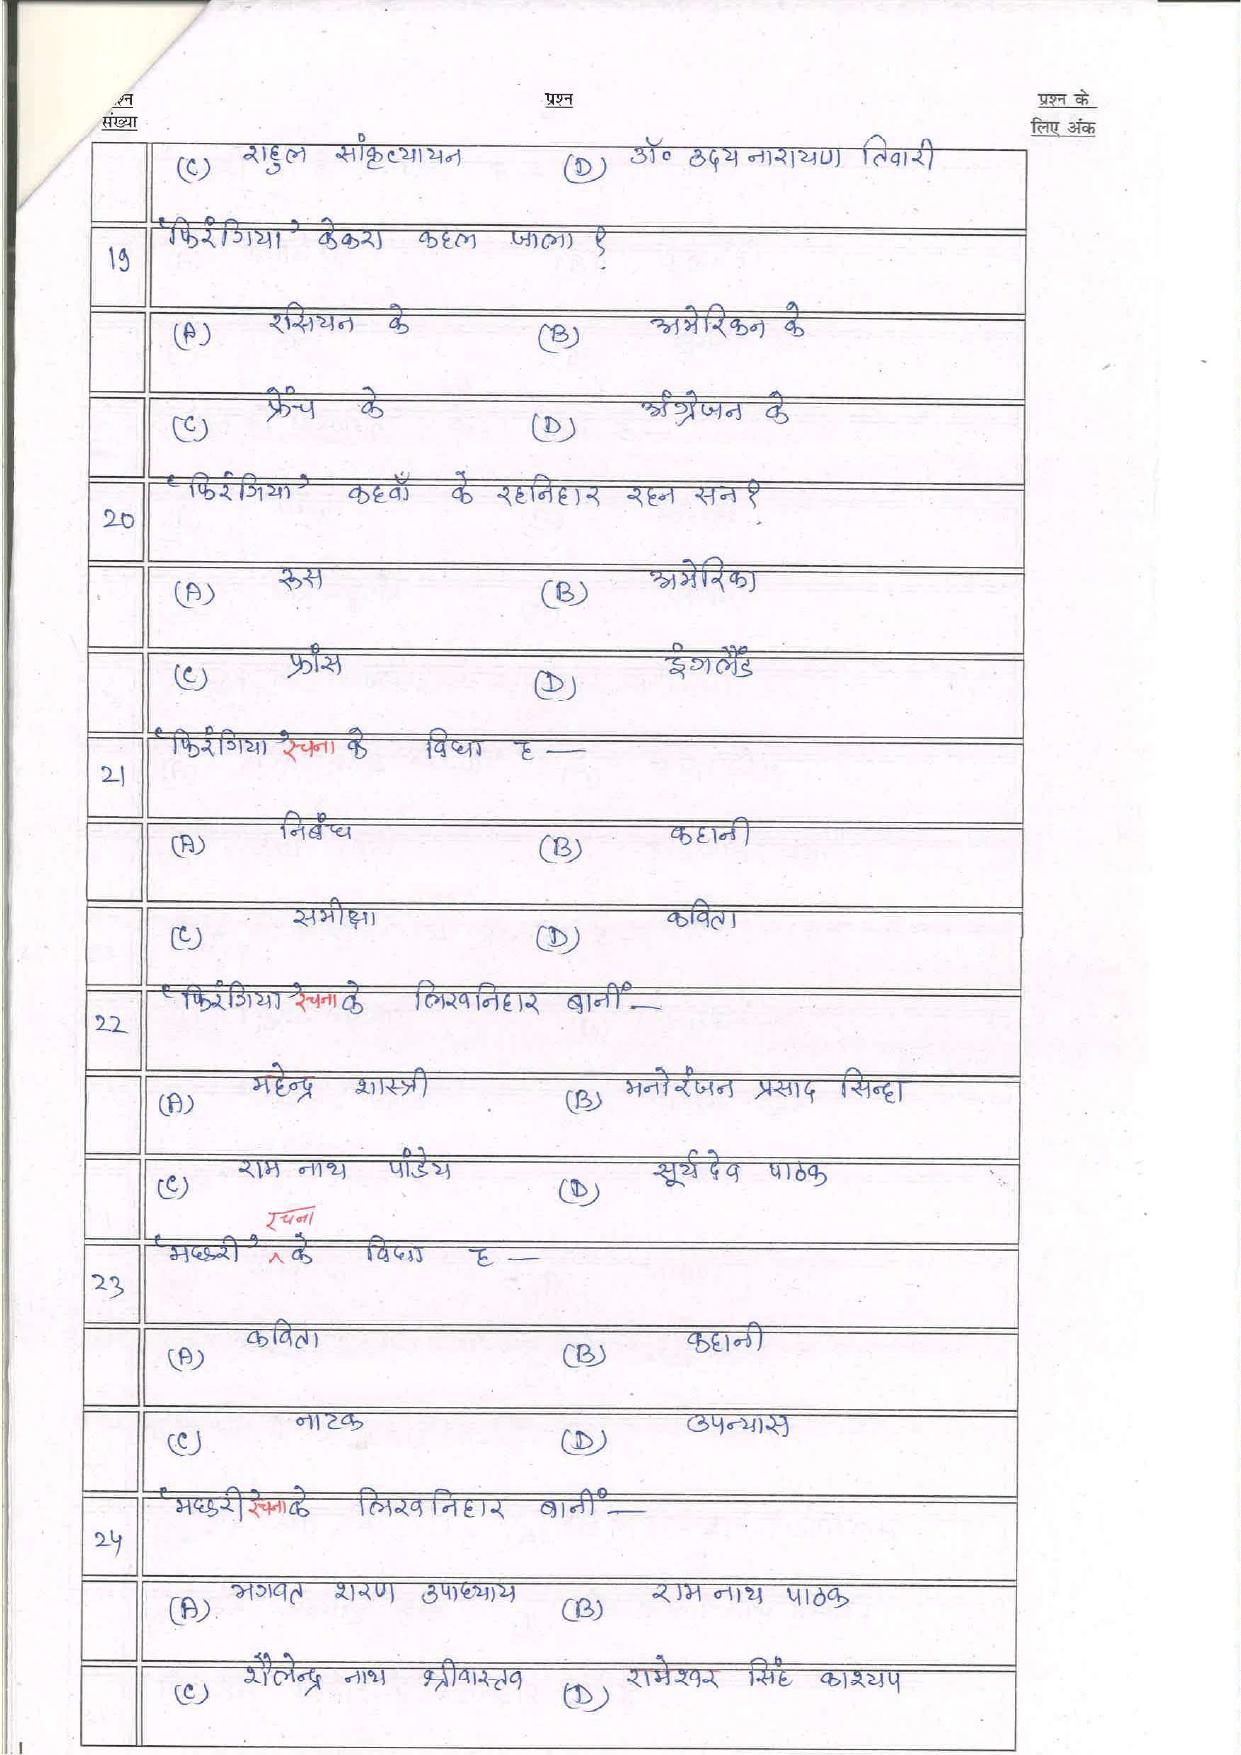 प्रश्न प्रश्न के
संख्या लिए अंक
(C) राहुल सांकृत्यायन (D) डॉ० उदय नारायण तिवारी
19 'फिरंगिया' केकरा कहल जाला ?
(A) रसियन के (B) अमेरिकन के
(C) फ्रेंच के (D) अंग्रेजन के
20 'फिरंगिया' कहवाँ के रहनिहार रहन सन ?
(A) रूस (B) अमेरिका
(C) फ्रांस (D) इंगलैंड
21 'फिरंगिया' रचना के विधा ह —
(A) निबंध (B) कहानी
(C) समीक्षा (D) कविता
22 'फिरंगिया' रचना के लिखनिहार बानीं —
(A) महेन्द्र शास्त्री (B) मनोरंजन प्रसाद सिन्हा
(C) राम नाथ पांडेय (D) सूर्यदेव पाठक
23 'मछरी' रचना के विधा ह —
(A) कविता (B) कहानी
(C) नाटक (D) उपन्यास
24 'मछरी' रचना के लिखनिहार बानीं —
(A) भगवत शरण उपाध्याय (B) राम नाथ पाठक
(C) शैलेन्द्र नाथ श्रीवास्तव (D) रामेश्वर सिंह काश्यप